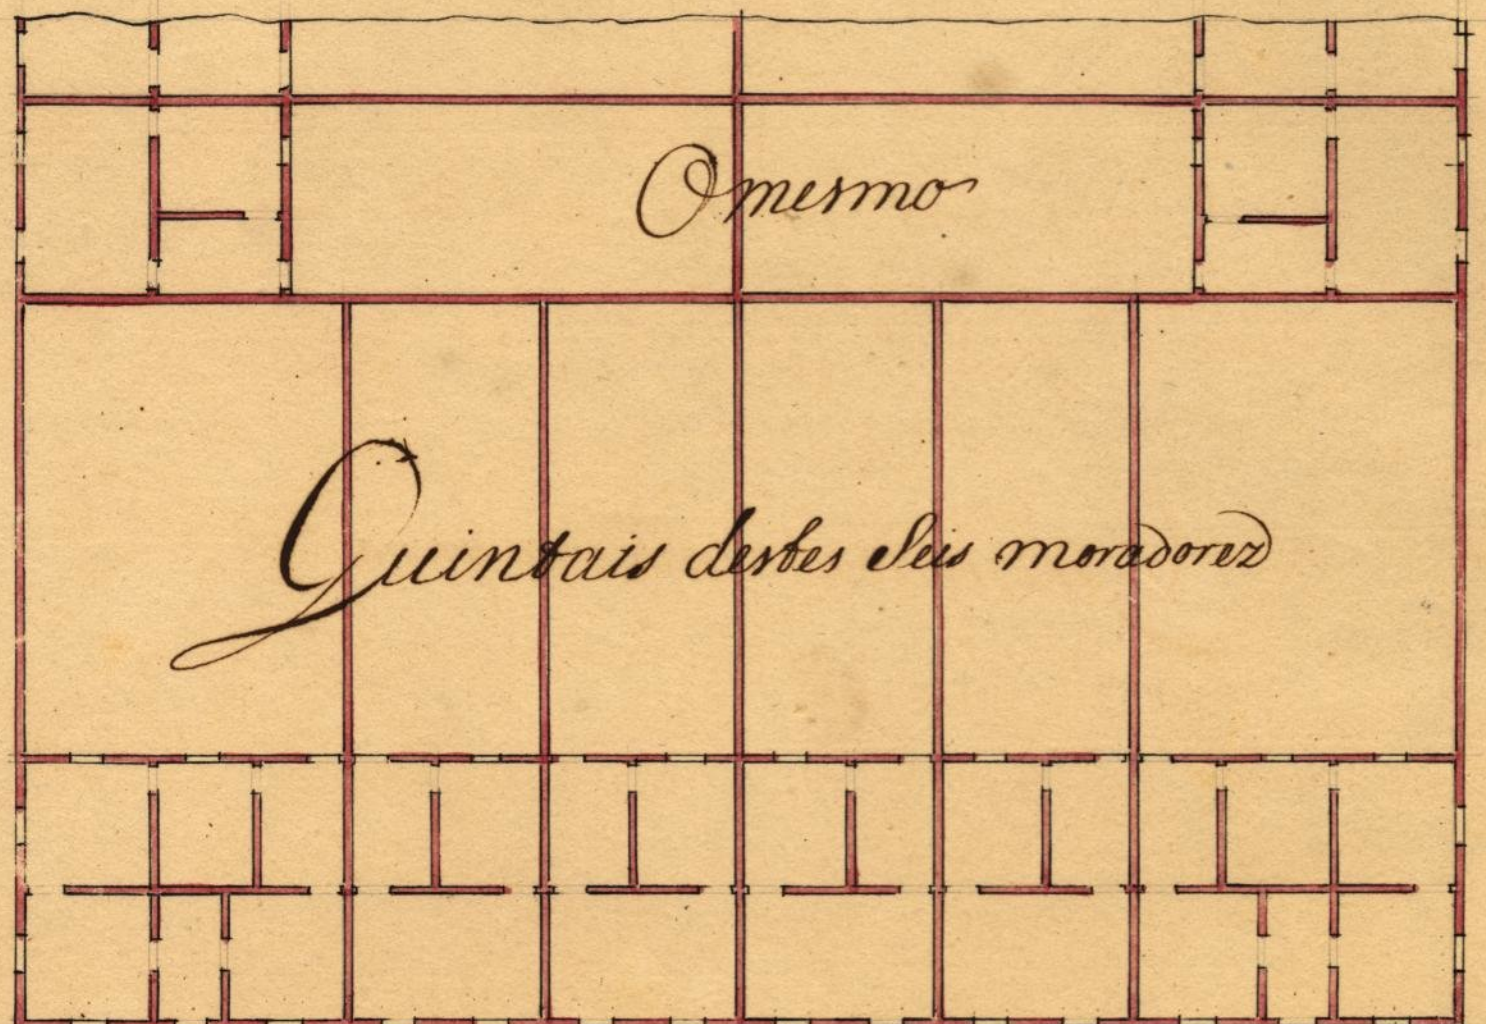 O mesmo
Quintais destes Seis moradorez